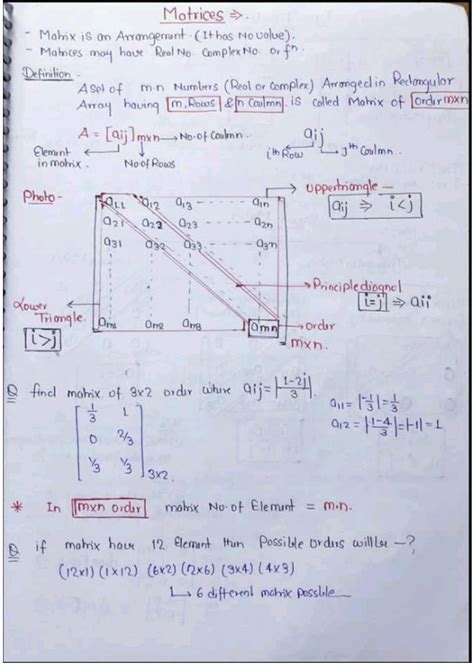 Matrices ⇒.
- Matrix is an Arrangement. (It has No value).
- Matrices may have Real No. Complex No. or fⁿ.
Definition -
A set of m.n Numbers (Real or Complex) Arranged in Rectangular
Array having m, Rows & n Coulmn. is called Matrix of order m×n
A = [aij] m×n → No. of Coulmn. aij
Element in matrix. No of Rows ith Row jth Coulmn.
Photo - Uppertriangle —
aij ⇒ i<j
a11 a12 a13 ---- a1n
a21 a22 a23 ---- a2n
a31 a32 a33 ---- a3n
Principle diagnol
i=j ⇒ aii
Lower Triangle.
i>j
am1 am2 am3 amn → order
m×n.
Q find matrix of 3×2 order where aij = |1-2j/3|
a11 = |-1/3| = 1/3
a12 = |1-4/3| = |-1| = 1
1/3 1
0 2/3
1/3 1/3 3×2
* In m×n order matrix No. of Element = m.n.
Q if matrix have 12 Element then Possible Orders will be —?
(12×1) (1×12) (6×2) (2×6) (3×4) (4×3)
↳ 6 different matrix possble